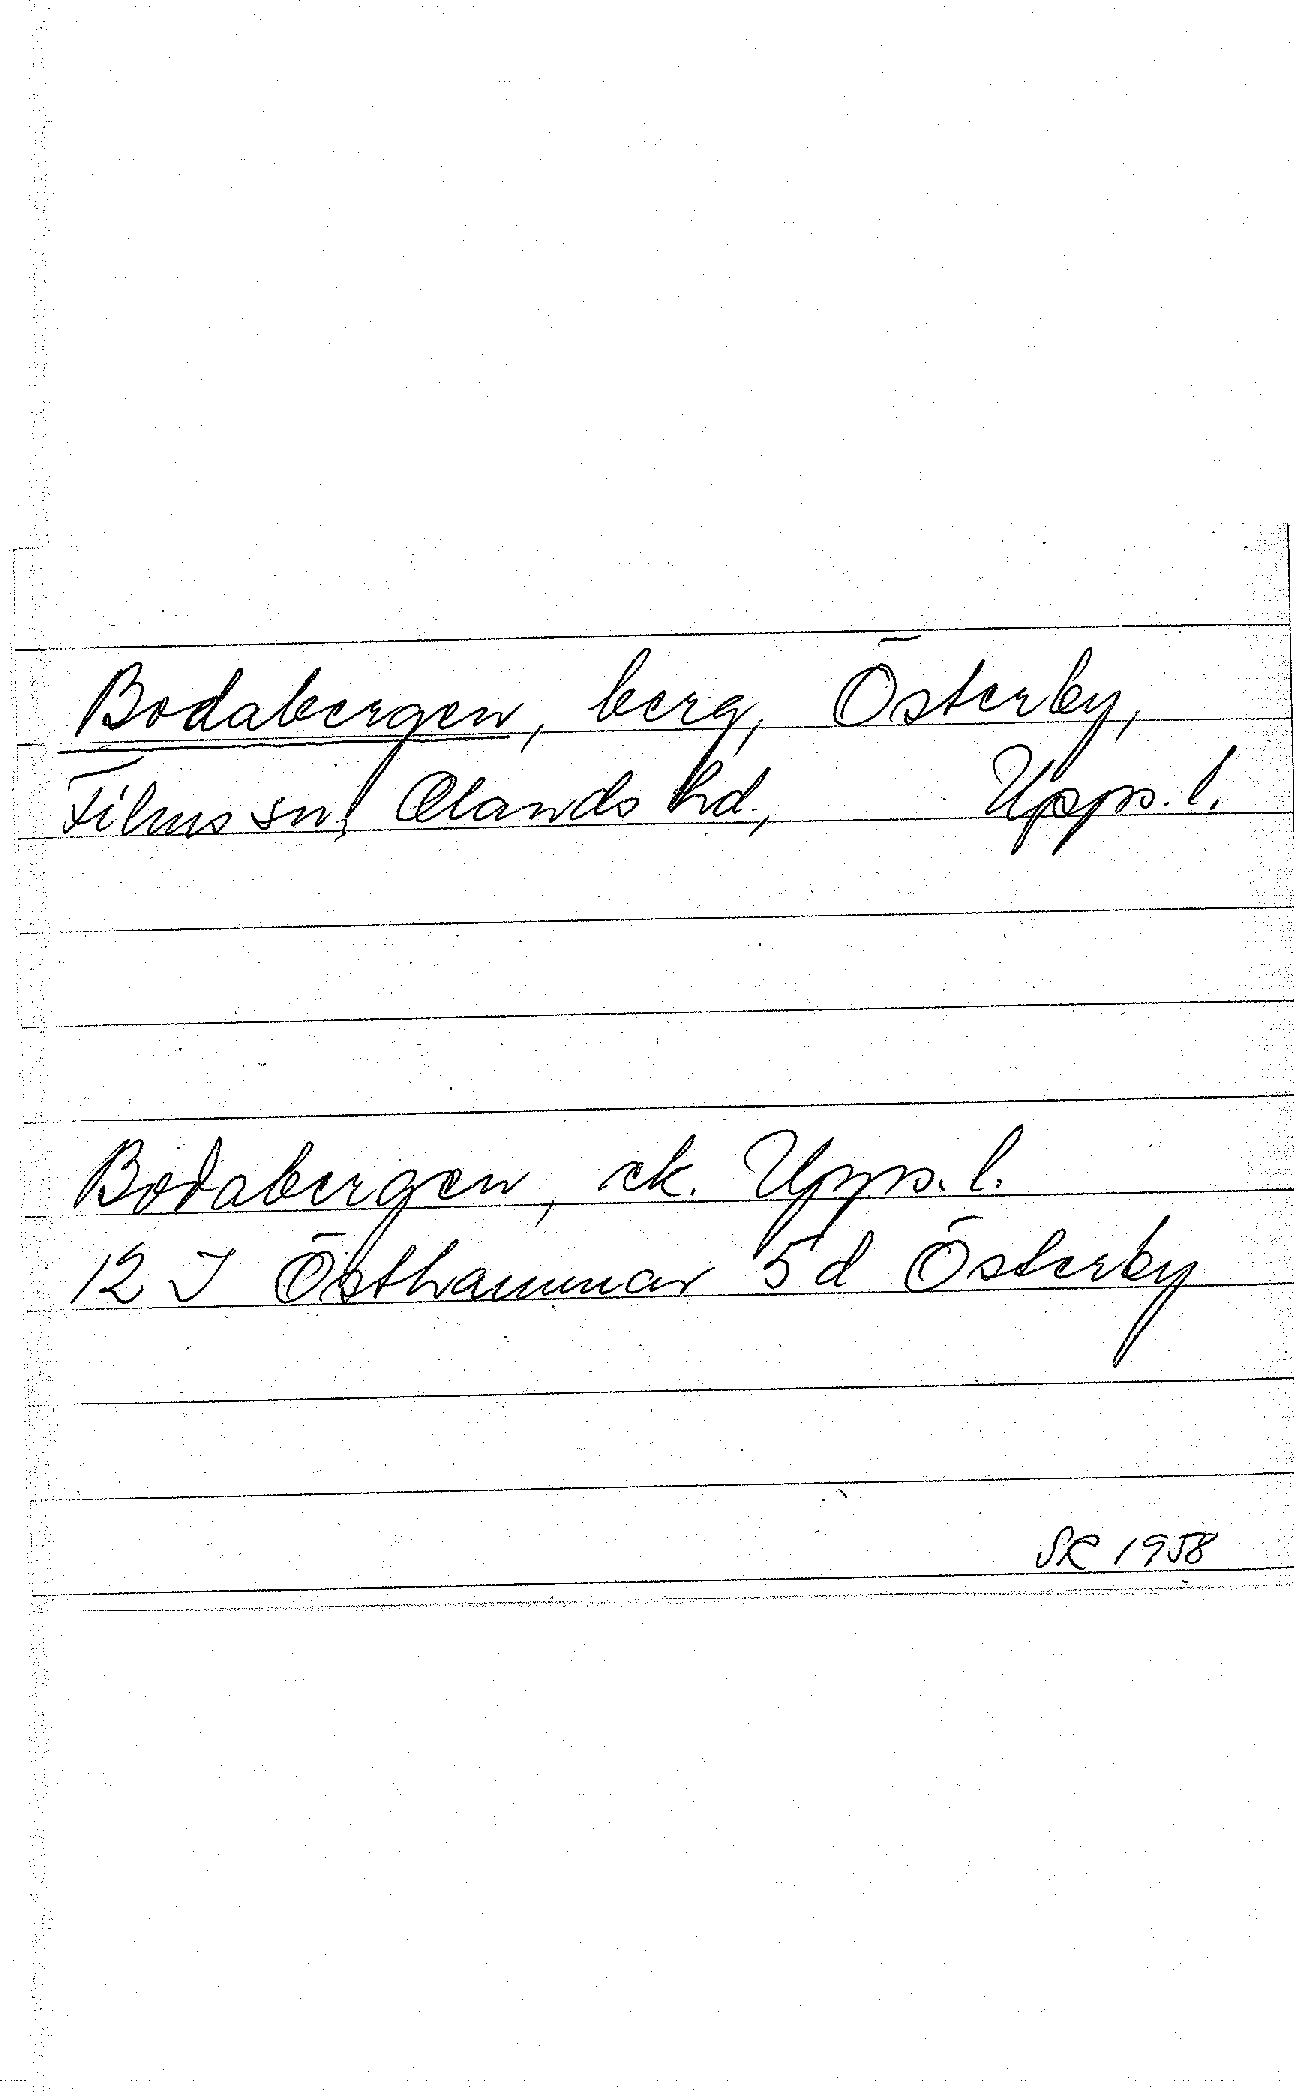 Bodabergen, berg, Österby,
Films sn, Olands hd., Upps. l.
Bodabergen, ek. Upps. l.
12 I Östhammar 5d Österby
SR 1958